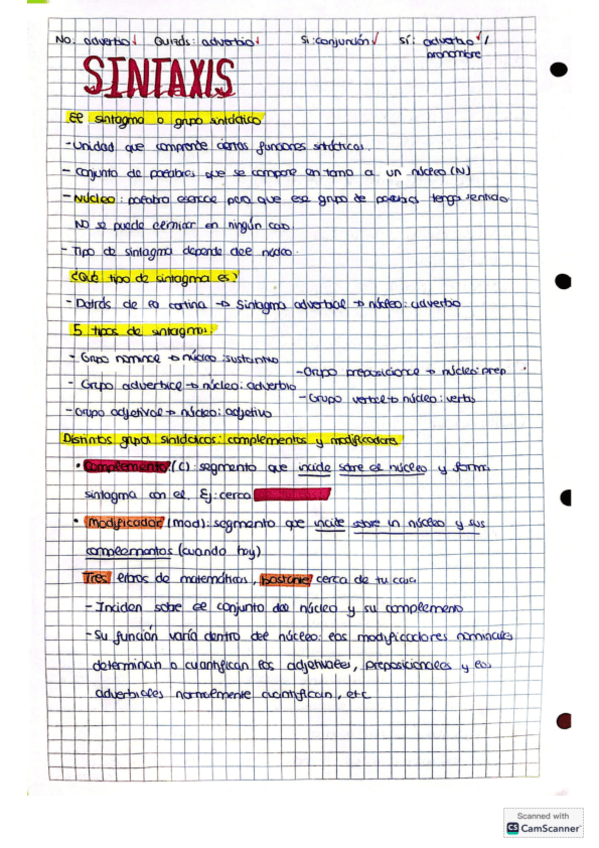 No: adverbio↓ Quizás: adverbio↓ Si: conjunción✓ sí: adverbio✓/
pronombre
SINTAXIS
El sintagma o grupo sintáctico
- Unidad que comprende ciertas funciones sintácticas.
- Conjunto de palabras que se compone en torno a un núcleo (N)
- Núcleo: palabra esencial para que ese grupo de palabras tenga sentido
NO se puede eliminar en ningún caso.
- Tipo de sintagma depende del núcleo.
¿Qué tipo de sintagma es?
- Detrás de la cortina → Sintagma adverbial → núcleo: adverbio
5 tipos de sintagmas:
- Grupo nominal → núcleo: sustantivo
- Grupo preposicional → núcleo: prep
- Grupo adverbial → núcleo: adverbio
- Grupo verbal → núcleo: verbo
- Grupo adjetival → núcleo: adjetivo
Distintos grupos sintácticos: complementos y modificadores
• Complemento (C): segmento que incide sobre el núcleo y forma
sintagma con él. Ej: cerca
• Modificador (mod): segmento que incide sobre un núcleo y sus
complementos (cuando hay)
Tres libros de matemáticas, bastante cerca de tu casa
- Inciden sobre el conjunto del núcleo y su complemento
- Su función varía dentro del núcleo: los modificadores nominales
determinan o cuantifican los adjetivales, preposicionales y los
adverbiales normalmente cuantifican, etc
Scanned with
CS CamScanner